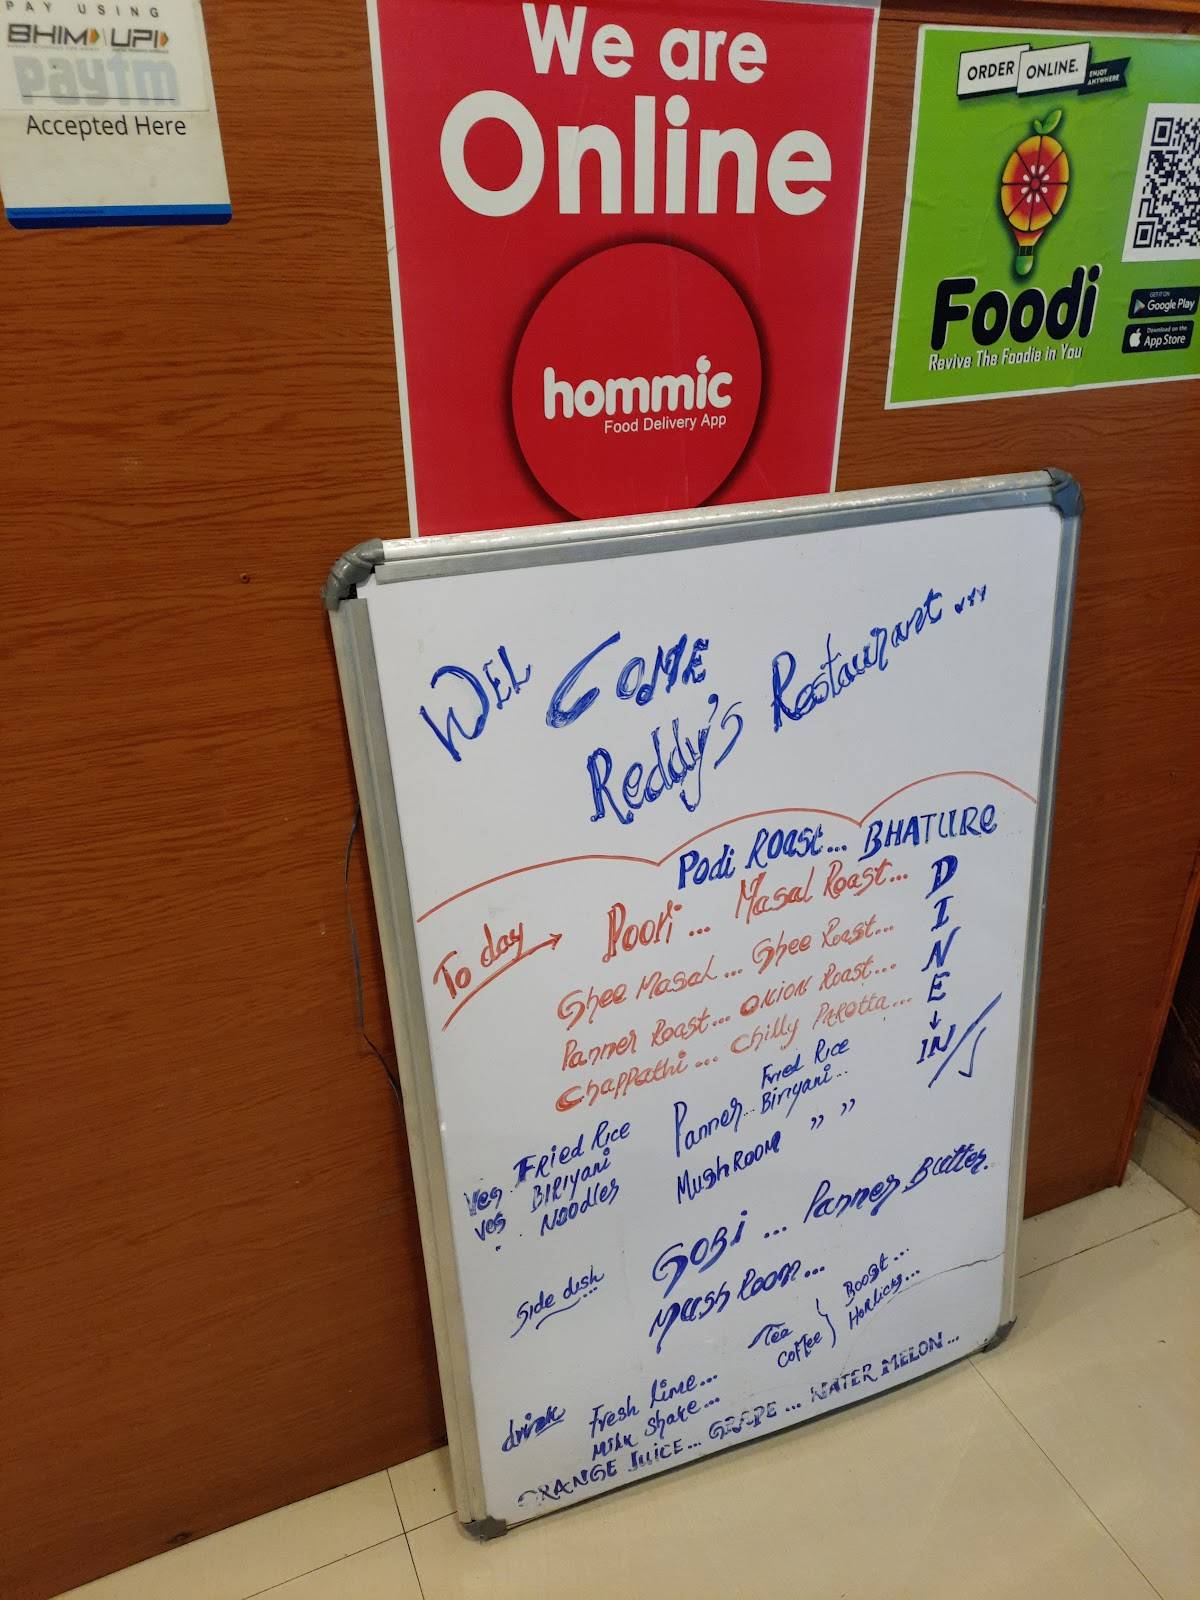 PAY USING
BHIM UPI
paytm
Accepted Here
We are
Online
hommic
Food Delivery App
ORDER ONLINE. ENJOY ANYWHERE
Foodi
Revive The Foodie in You
GET IT ON
Google Play
Download on the
App Store
WEL COME
Reddy's Restaurant...
Podi Roast... BHATURE
To day → Poori... Masal Roast...
Ghee Masal... Ghee Roast...
Panner Roast... Onion Roast...
Chappathi... Chilly Parotta...
DINE
↓
IN
Veg Fried Rice
Veg BIRIyani
" Noodles
Panner Fried Rice
Biriyani...
MushRoom " "
Side dish
GOBI... Panner Butter..
Mush Room...
Tea
Coffee } Boost...
Horlicks...
drink
Fresh lime...
Milk Shake...
ORANGE JUICE... GRAPE... WATER MELON...